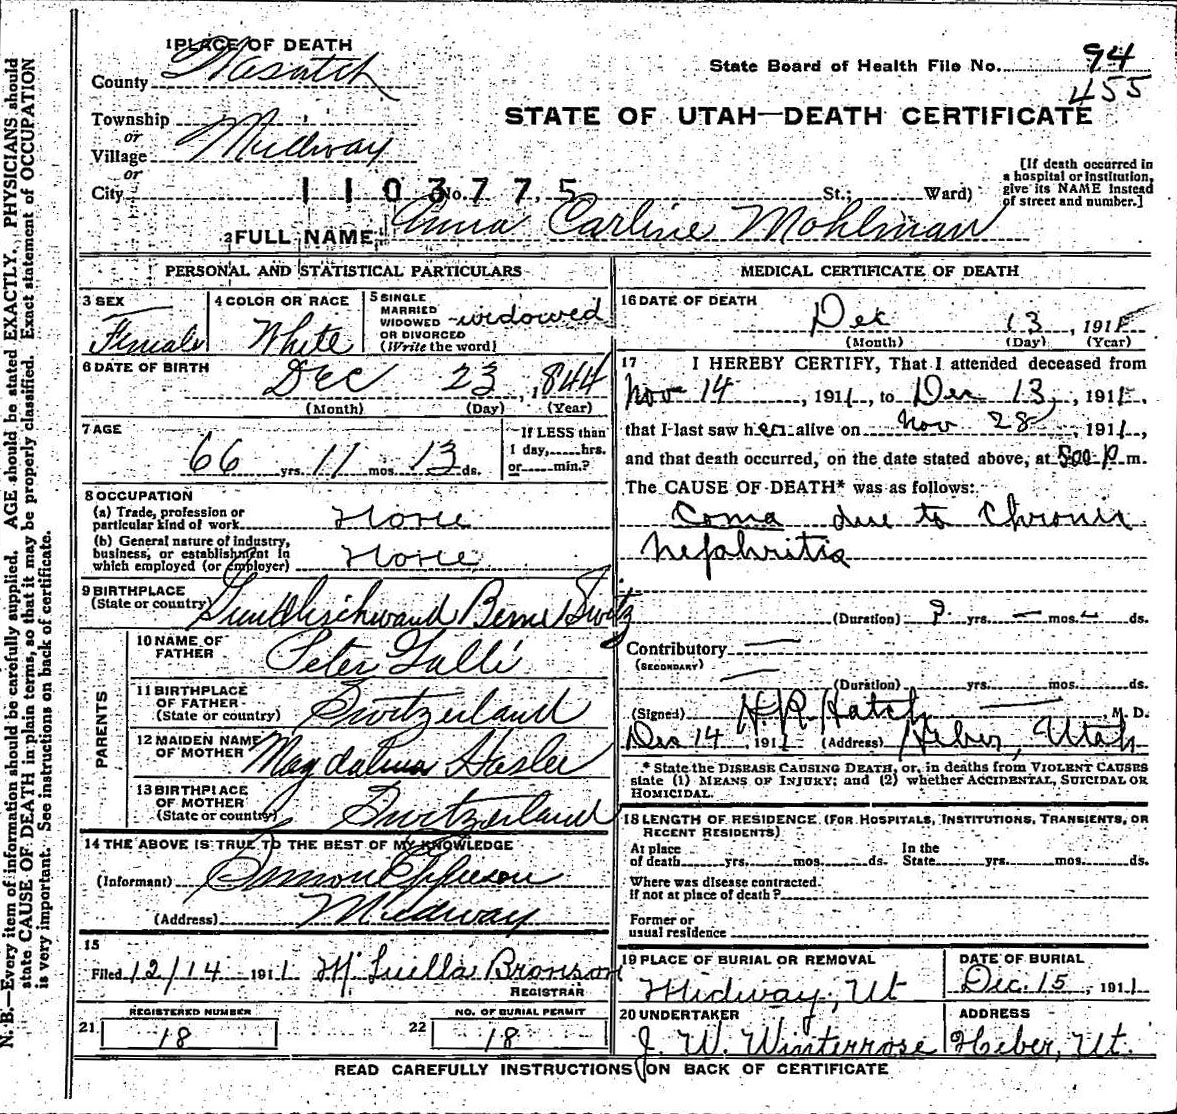 1 PLACE OF DEATH
County Wasatch
State Board of Health File No. 94
455
STATE OF UTAH—DEATH CERTIFICATE
Township
or
Village Midway
or
City
1103775
No. St.; Ward)
[If death occurred in
a hospital or institution,
give its NAME instead
of street and number.]
2 FULL NAME Anna Carline Mohlman
PERSONAL AND STATISTICAL PARTICULARS
3 SEX
Female
4 COLOR OR RACE
White
5 SINGLE
MARRIED
WIDOWED
OR DIVORCED
(Write the word)
widowed
6 DATE OF BIRTH
Dec 23, 1844
(Month) (Day) (Year)
7 AGE
66 yrs. 11 mos. 13 ds.
If LESS than
1 day, hrs.
or min.?
8 OCCUPATION
(a) Trade, profession or
particular kind of work None
(b) General nature of industry,
business, or establishment in
which employed (or employer) None
9 BIRTHPLACE
(State or country) Berne Switz
PARENTS
10 NAME OF
FATHER Peter Galli
11 BIRTHPLACE
OF FATHER
(State or country) Switzerland
12 MAIDEN NAME
OF MOTHER Magdalena Hasler
13 BIRTHPLACE
OF MOTHER
(State or country) Switzerland
14 THE ABOVE IS TRUE TO THE BEST OF MY KNOWLEDGE
(Informant) Simon Epperson
(Address) Midway
15
Filed 12/14 1911 M Luella Bronson
REGISTRAR
REGISTERED NUMBER
21 18
NO. OF BURIAL PERMIT
22 18
MEDICAL CERTIFICATE OF DEATH
16 DATE OF DEATH
Dec 13, 1911
(Month) (Day) (Year)
17 I HEREBY CERTIFY, That I attended deceased from
Nov 14, 1911, to Dec 13, 1911,
that I last saw her alive on Nov 28, 1911,
and that death occurred, on the date stated above, at 5:00 P m.
The CAUSE OF DEATH* was as follows:
Coma due to Chronic
Nephritis
(Duration) ? yrs. — mos. — ds.
Contributory
(SECONDARY)
(Duration) yrs. mos. ds.
(Signed) H R Hatch M. D.
Dec 14, 1911 (Address) Heber, Utah
* State the DISEASE CAUSING DEATH, or, in deaths from VIOLENT CAUSES
state (1) MEANS OF INJURY; and (2) whether ACCIDENTAL, SUICIDAL OR
HOMICIDAL.
18 LENGTH OF RESIDENCE (FOR HOSPITALS, INSTITUTIONS, TRANSIENTS, OR
RECENT RESIDENTS)
At place
of death yrs. mos. ds.
In the
State yrs. mos. ds.
Where was disease contracted
if not at place of death?
Former or
usual residence
19 PLACE OF BURIAL OR REMOVAL
Midway, Ut
DATE OF BURIAL
Dec. 15, 1911
20 UNDERTAKER
J. W. Winterrose
ADDRESS
Heber, Ut.
READ CAREFULLY INSTRUCTIONS ON BACK OF CERTIFICATE
N. B.—Every item of information should be carefully supplied. AGE should be stated EXACTLY. PHYSICIANS should
state CAUSE OF DEATH in plain terms, so that it may be properly classified. Exact statement of OCCUPATION
is very important. See instructions on back of certificate.